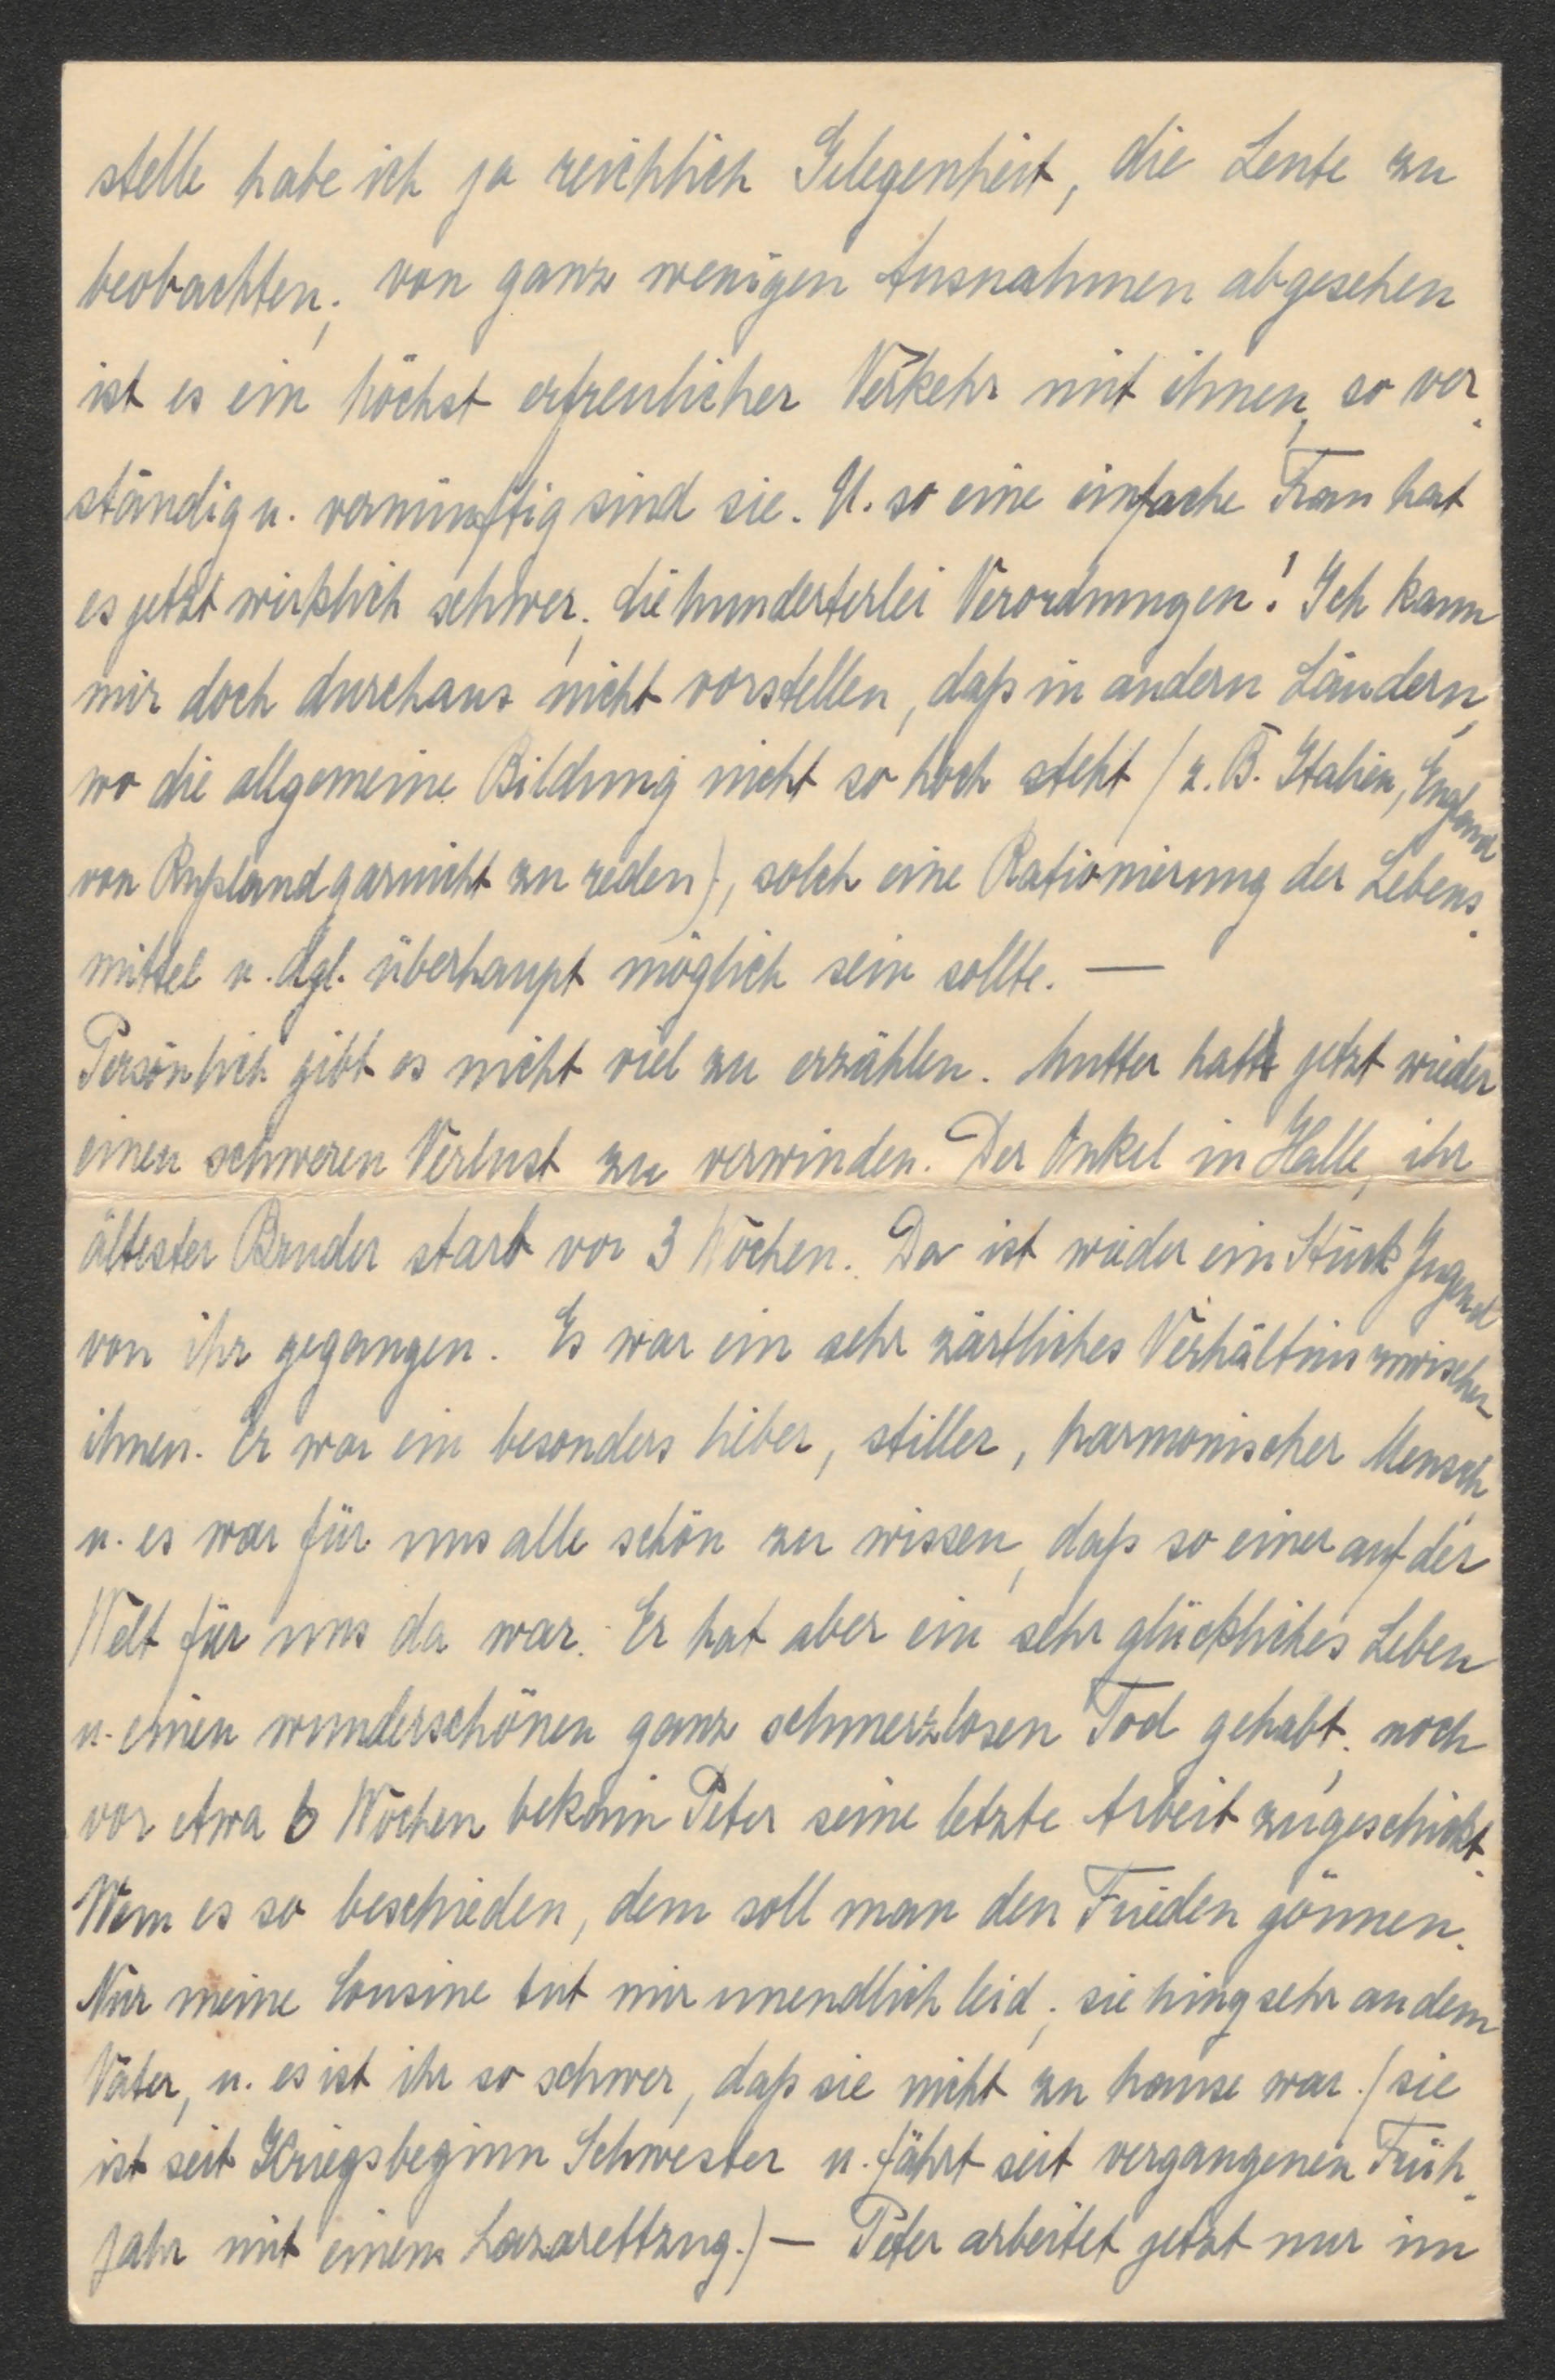 stelle habe ich ja reichlich Gelegenheit, die Leute zu
beobachten; von ganz wenigen Ausnahmen abgesehen
ist es ein höchst erfreulicher Verkehr mit ihnen, so ver-
ständig u. vernünftig sind sie. U. so eine einfache Frau hat
es jetzt wirklich schwer; die hunderterlei Verordnungen! Ich kann
mir doch durchaus nicht vorstellen, daß in andern Ländern,
wo die allgemeine Bildung nicht so hoch steht (z. B. Italien, England
von Rußland garnicht zu reden), solch eine Rationierung der Lebens-
mittel u. dgl. überhaupt möglich sein sollte. —
Persönlich gibt es nicht viel zu erzählen. Mutter hatte jetzt wieder
einen schweren Verlust zu verwinden. Der Onkel in Halle, ihr
ältester Bruder starb vor 3 Wochen. Da ist wieder ein Stück Jugend
von ihr gegangen. Es war ein sehr zärtliches Verhältnis zwischen
ihnen. Er war ein besonders lieber, stiller, harmonischer Mensch,
u. es war für uns alle schön zu wissen, daß so einer auf der
Welt für uns da war. Er hat aber ein sehr glückliches Leben
u. einen wunderschönen ganz schmerzlosen Tod gehabt; noch
vor etwa 6 Wochen bekam Peter seine letzte Arbeit zugeschickt.
Wem es so beschieden, dem soll man den Frieden gönnen.
Nur meine Cousine tut mir unendlich leid; sie hing sehr an dem
Vater, u. es ist ihr so schwer, daß sie nicht zu hause war. (sie
ist seit Kriegsbeginn Schwester u. fährt seit vergangenen Früh-
jahr mit einem Lazarettzug.) — Peter arbeitet jetzt nur im